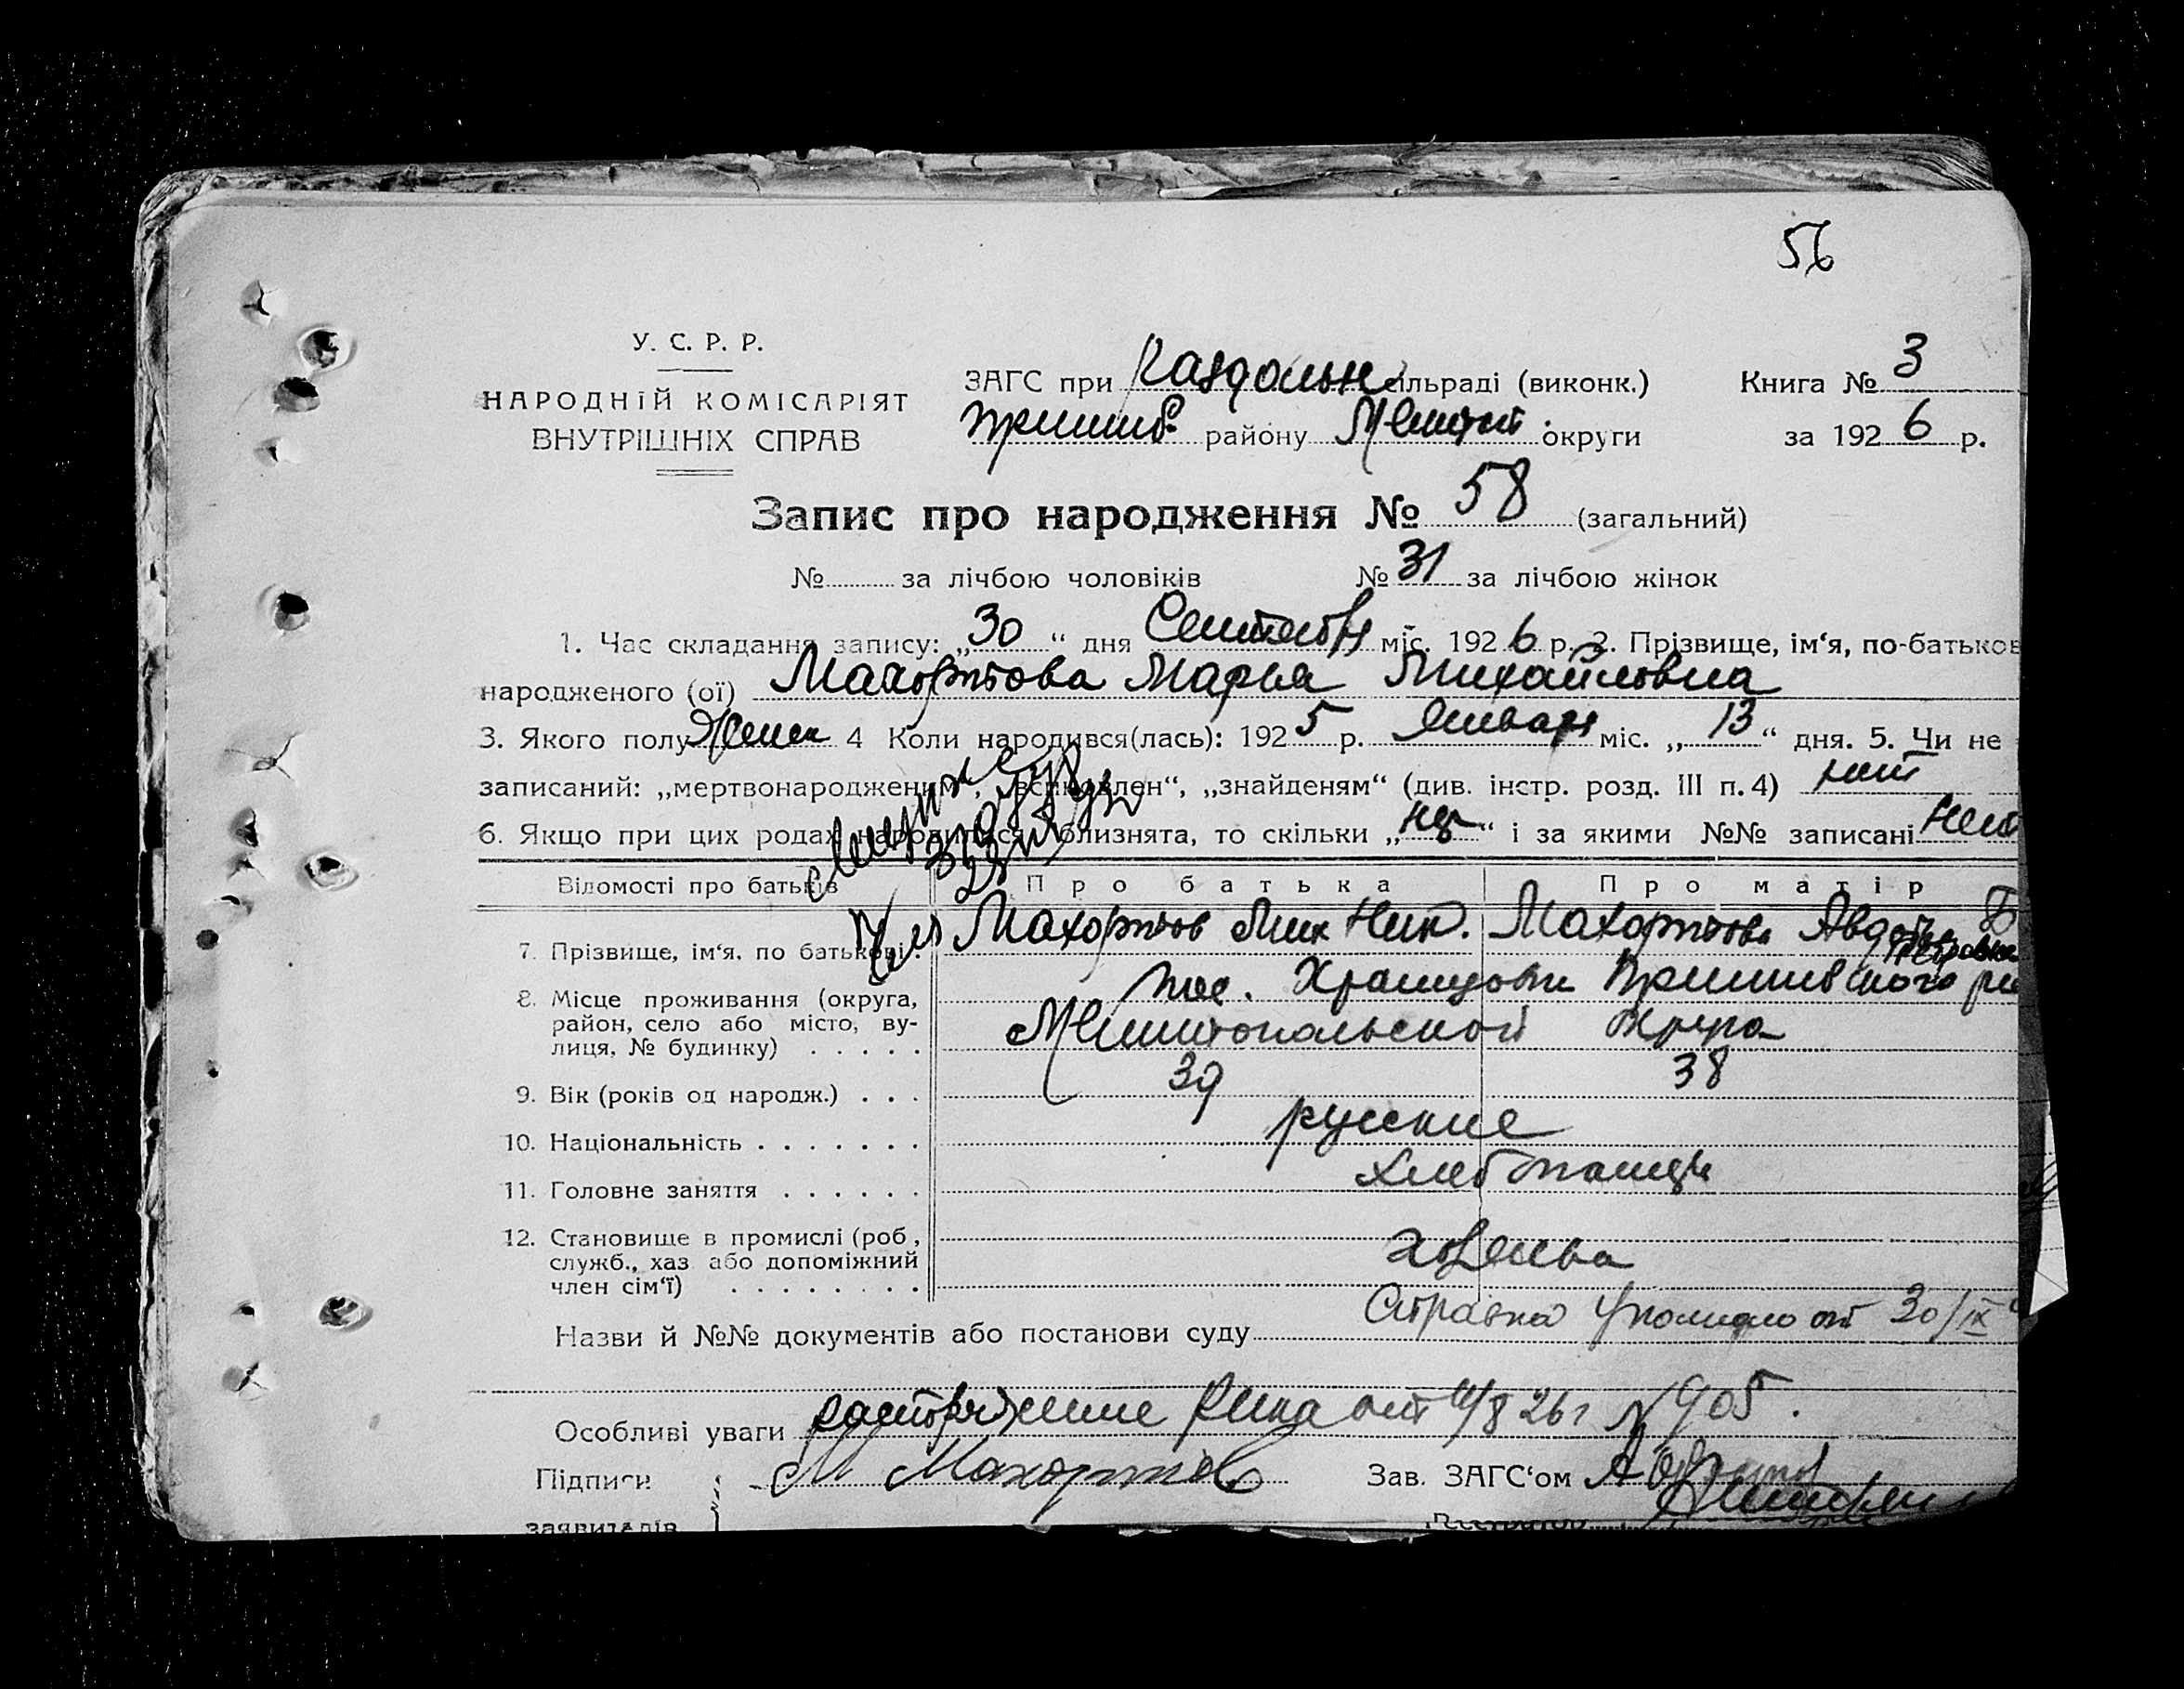 56
У. С. Р. Р.
НАРОДНІЙ КОМІСАРІЯТ
ВНУТРІШНІХ СПРАВ
ЗАГС при Раздольн сільраді (виконк.) Книга № 3
Пришиб району Мелит. округи за 1926 р.
Запис про народження № 58 (загальний)
№ за лічбою чоловіків № 31 за лічбою жінок
1. Час складання запису: „30“ дня Сентябр міс. 1926 р. 2. Прізвище, ім‘я, по-батьков
народженого (ої) Махортова Марья Михайловна
3. Якого полу Женск 4 Коли народився(лась): 1925 р. Январ міс. „13“ дня. 5. Чи не
записаний: „мертвонародженим“, „всиновлен“, „знайденям“ (див. інстр. розд. III п. 4) нет
6. Якщо при цих родах народилися близнята, то скільки „ “ і за якими №№ записані нет
Відомості про батьків Про батька Про матір
7. Прізвище, ім‘я, по батькові. Махортов Мих Ник. Махортова Авдотья Петровна
8. Місце проживання (округа, район, село або місто, ву-лиця, № будинку) . . . . . пос. Пришибского
Мелитопольской округа
9. Вік (років од народж.) . . . 39 38
10. Національність . . . . . . . русские
11. Головне заняття . . . . . . хлебопашци
12. Становище в промислі (роб, служб., хаз або допоміжний член сім‘ї) . . . . . . . . хозяева
Назви й №№ документів або постанови суду Справка от 30/IX
Особливі уваги распоряжение Рика от /8 26 г № 905.
Підписи М Махортов Зав. ЗАГС‘ом
заявителів